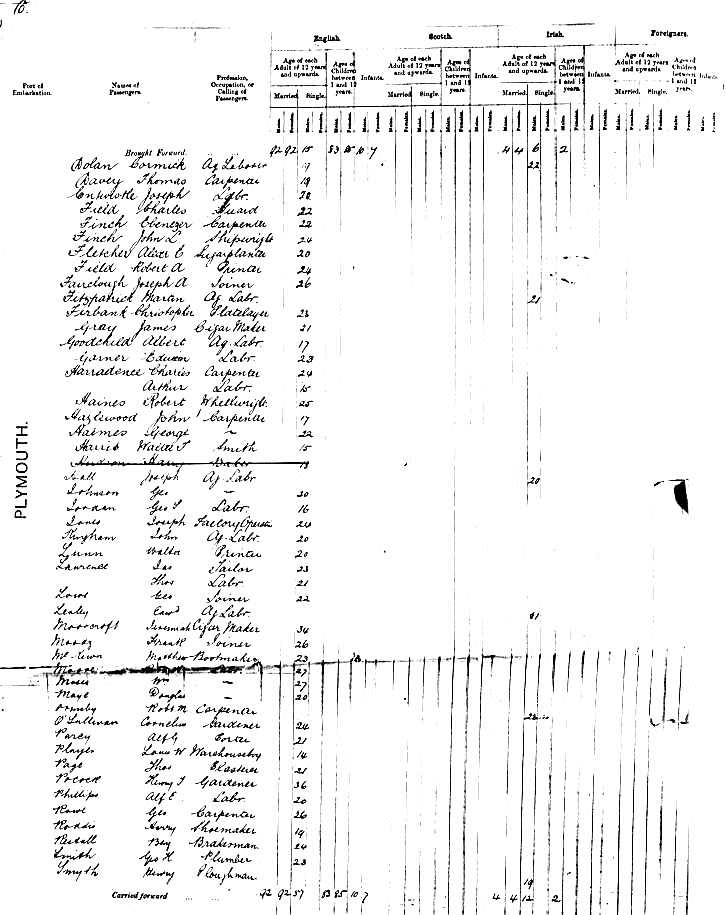 English. Scotch. Irish. Foreigners.
Port of Embarkation. Names of Passengers. Profession, Occupation, or Calling of Passengers.
Age of each Adult of 12 years and upwards. Ages of Children between 1 and 12 years. Infants.
Married. Single.
Brought Forward. 92 92 15 83 85 10 7 4 4 6 2
Dolan Cormick Ag Laborer 22
Davey Thomas Carpenter 19
Entwistle Joseph Labr. 20
Field Charles Guard 22
Finch Ebenezer Carpenter 22
Finch John L Shipwright 24
Fletcher 20
Field Robert A Printer 24
Fairclough Joseph A Joiner 26
Fitzpatrick Martin Ag Labr. 21
Firbank Christopher Platelayer 23
Gray James Cigar Maker 21
Goodchild Albert Ag. Labr. 17
Garner Edwin Labr. 23
Harradence Charles Carpenter 24
Arthur Labr. 15
Haines Robert Whellwright 25
Hazlewood John Carpenter 17
Haimes George " 22
Harris Walter T Smith 15
Hudson Harry
Joseph Ag Labr 20
Johnson Geo " 30
Jordan Geo S Labr. 16
Jones Joseph Factory Operator 24
Kingham John Ag. Labr. 20
Lunn Walter Printer 20
Lawrence Jas Tailor 23
Thos Labr 21
Lowe Geo Joiner 22
Edwd Ag Labr. 21
Moorcroft Jeremiah Cigar Maker 34
Moody Frank Joiner 26
Matthew Bootmaker 23
27
Moses Wm " 27
Maye Douglas " 20
Ormsby Robt M Carpenter
O'Sullivan Cornelius Gardener 24
Parcy Alf G Porter 21
Player Louis W Warehouseboy 14
Page Thos Plasterer 21
Pocock Henry J Gardener 36
Phillips Alf E. Labr 20
Rowe Geo Carpenter 26
Roddis Harry Shoemaker 19
Restall Benj Brakesman 24
Smith Geo H Plumber 23
Smyth Henry Ploughman 19
PLYMOUTH.
Carried forward 92 92 57 83 85 10 7 4 4 12 2